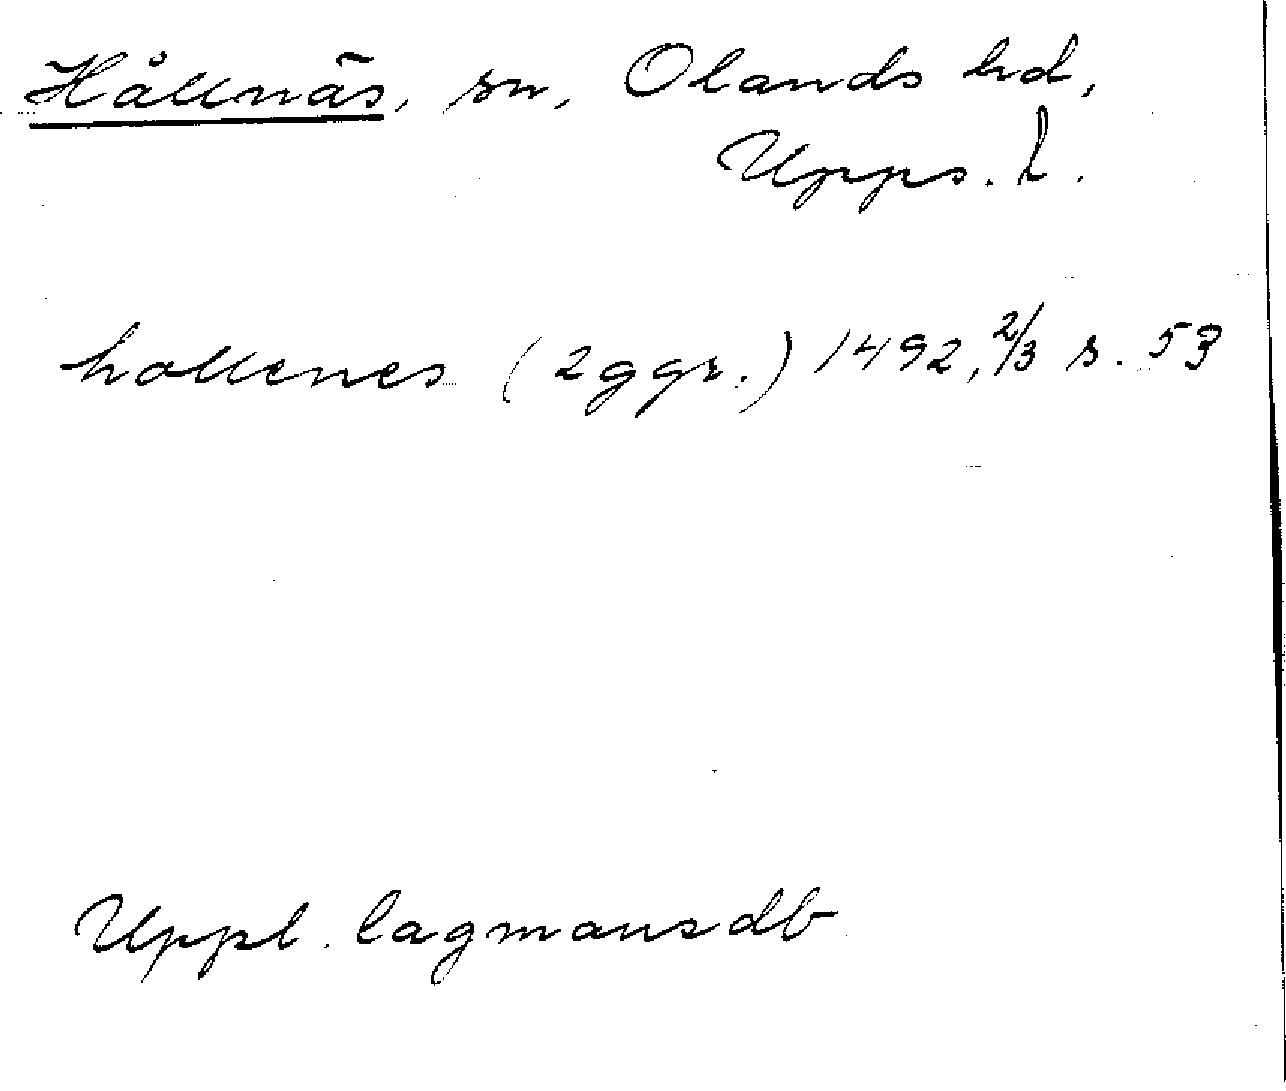 Hållnäs, sn, Olands hd,
Upps. l.
hollenes (2 ggr.) 1492, 2/3 s. 53
Uppl. lagmansdb